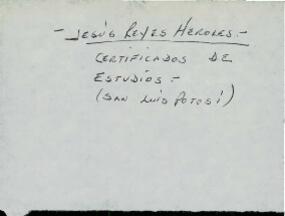 - Jesús Reyes Heroles.-
CERTIFICADOS DE
ESTUDIOS.-
(SAN LUIS POTOSÍ)